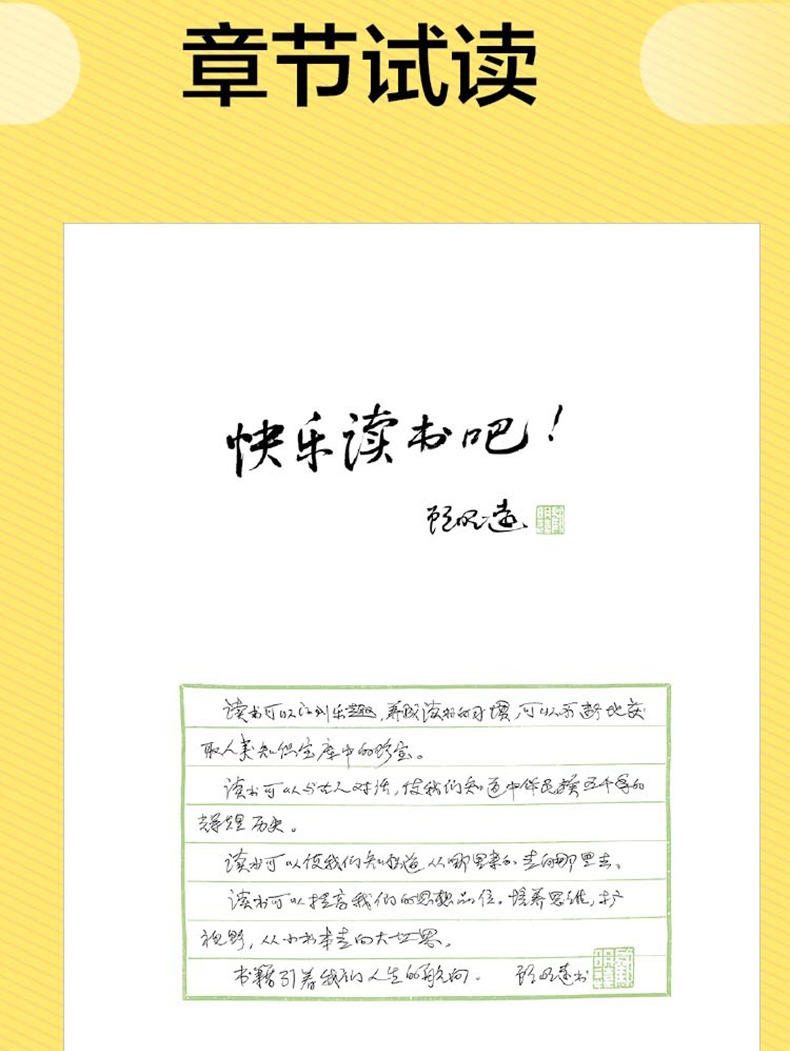 章节试读
快乐读书吧！
顾明远
读书可以得到乐趣，养成读书的习惯，可以不断地获
取人类知识宝库中的珍宝。
读书可以与古人对话，使我们知道中华民族五千年的
辉煌历史。
读书可以使我们知道从哪里来的走向那里去。
读书可以提高我们的思想品位，培养思维，扩
视野，从小书本走向大世界。
书籍引着我们人生的航向。 顾明远书